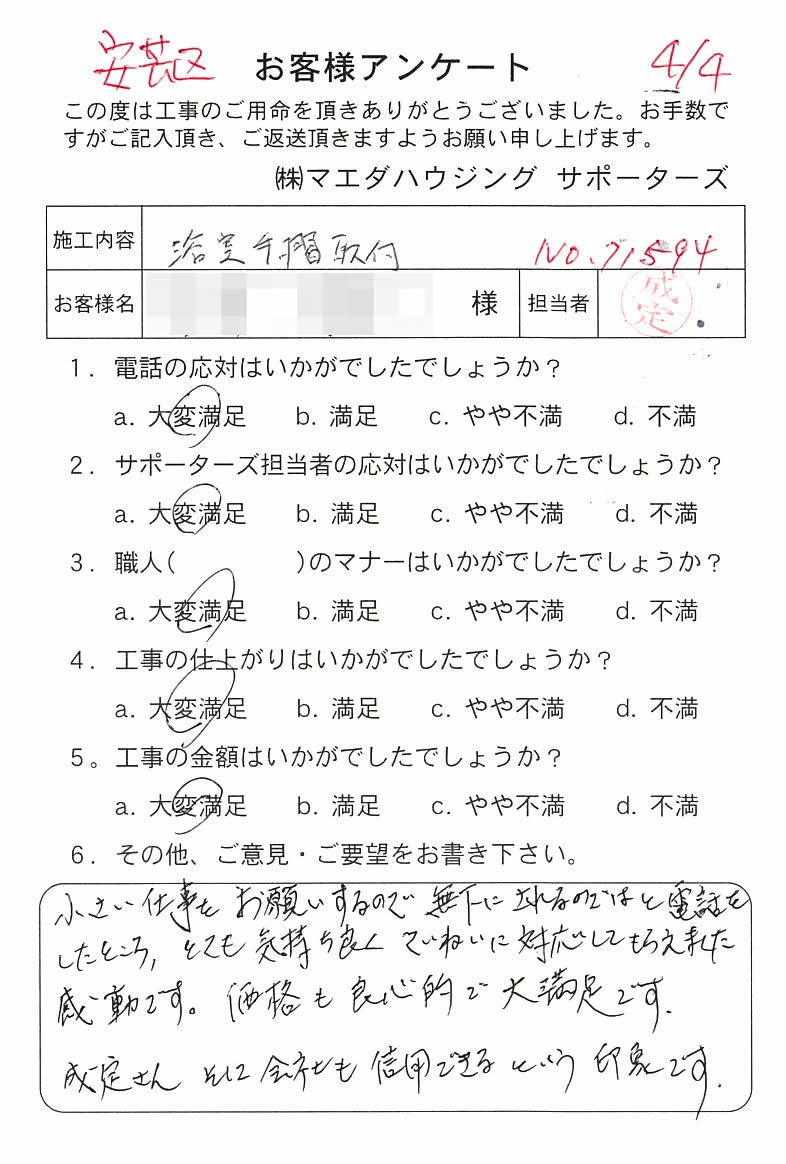 安芸区 お客様アンケート 4/4
この度は工事のご用命を頂きありがとうございました。お手数で
すがご記入頂き、ご返送頂きますようお願い申し上げます。
㈱マエダハウジング サポーターズ
施工内容 浴室手摺取付 NO.71594
お客様名 様 担当者 成定
1. 電話の応対はいかがでしたでしょうか？
a. 大変満足 b. 満足 c. やや不満 d. 不満
2. サポーターズ担当者の応対はいかがでしたでしょうか？
a. 大変満足 b. 満足 c. やや不満 d. 不満
3. 職人( )のマナーはいかがでしたでしょうか？
a. 大変満足 b. 満足 c. やや不満 d. 不満
4. 工事の仕上がりはいかがでしたでしょうか？
a. 大変満足 b. 満足 c. やや不満 d. 不満
5。工事の金額はいかがでしたでしょうか？
a. 大変満足 b. 満足 c. やや不満 d. 不満
6. その他、ご意見・ご要望をお書き下さい。
小さい仕事をお願いするので無下にされるのではと電話を
したところ，とても気持ち良くていねいに対応してもらえました
感動です。価格も良心的で大満足です．
成定さんそして会社も信用できるという印象です．